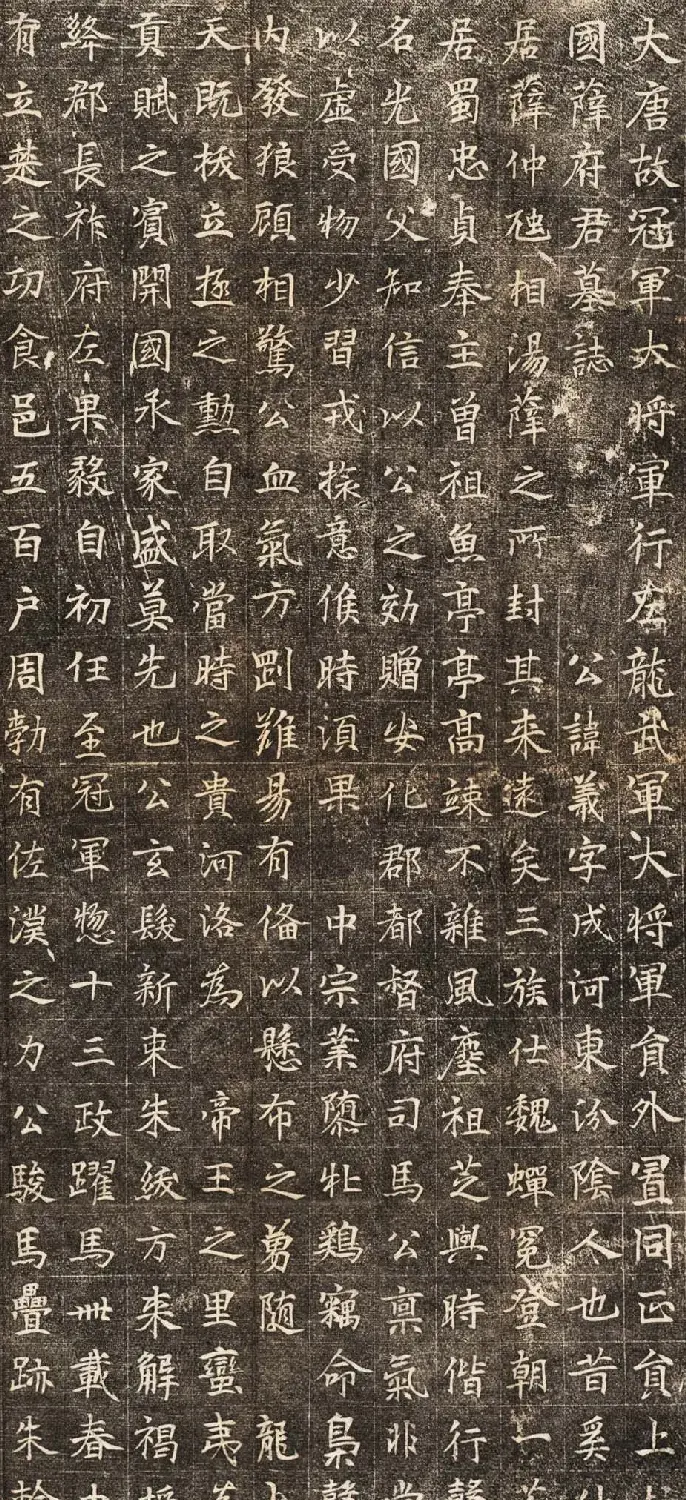 大唐故冠軍大將軍行左龍武軍大將軍員外置同正員上
國薛府君墓誌 公諱義字成河東汾陰人也昔奚
居薛仲虺相湯薩之所封其来遠矣三族仕魏蟬冕登朝一
居蜀忠貞奉主曾祖魚亭亭高竦不雜風塵祖芝與時偕行
名光國父知信以公之効贈安化郡都督府司馬公禀氣非
以虛受物少習戎振意候時須果 中宗業隳牝鷄竊命梟
内發狼顧相驚公血氣方剛難易有俻以懸布之勇随 龍
天既拔立極之勲自取當時之貴河洛為 帝王之里蠻夷
貢賦之賓開國承家盛莫先也公玄髮新束朱紱方来解褐
絳郡長祚府左果毅自初任至冠軍惣十三政躍馬卌載春
有立葉之功食邑五百户周勃有佐漢之力公駿馬疊跡朱